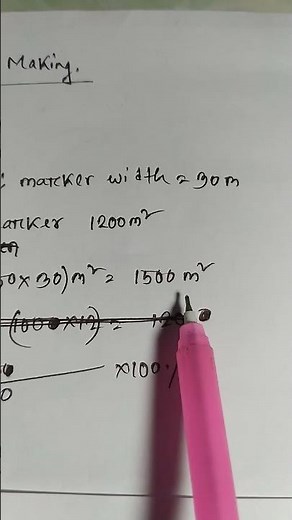 Making.
: marker width = 30m
arker 1200m²
50×30)m² = 1500 m²
×100%
0